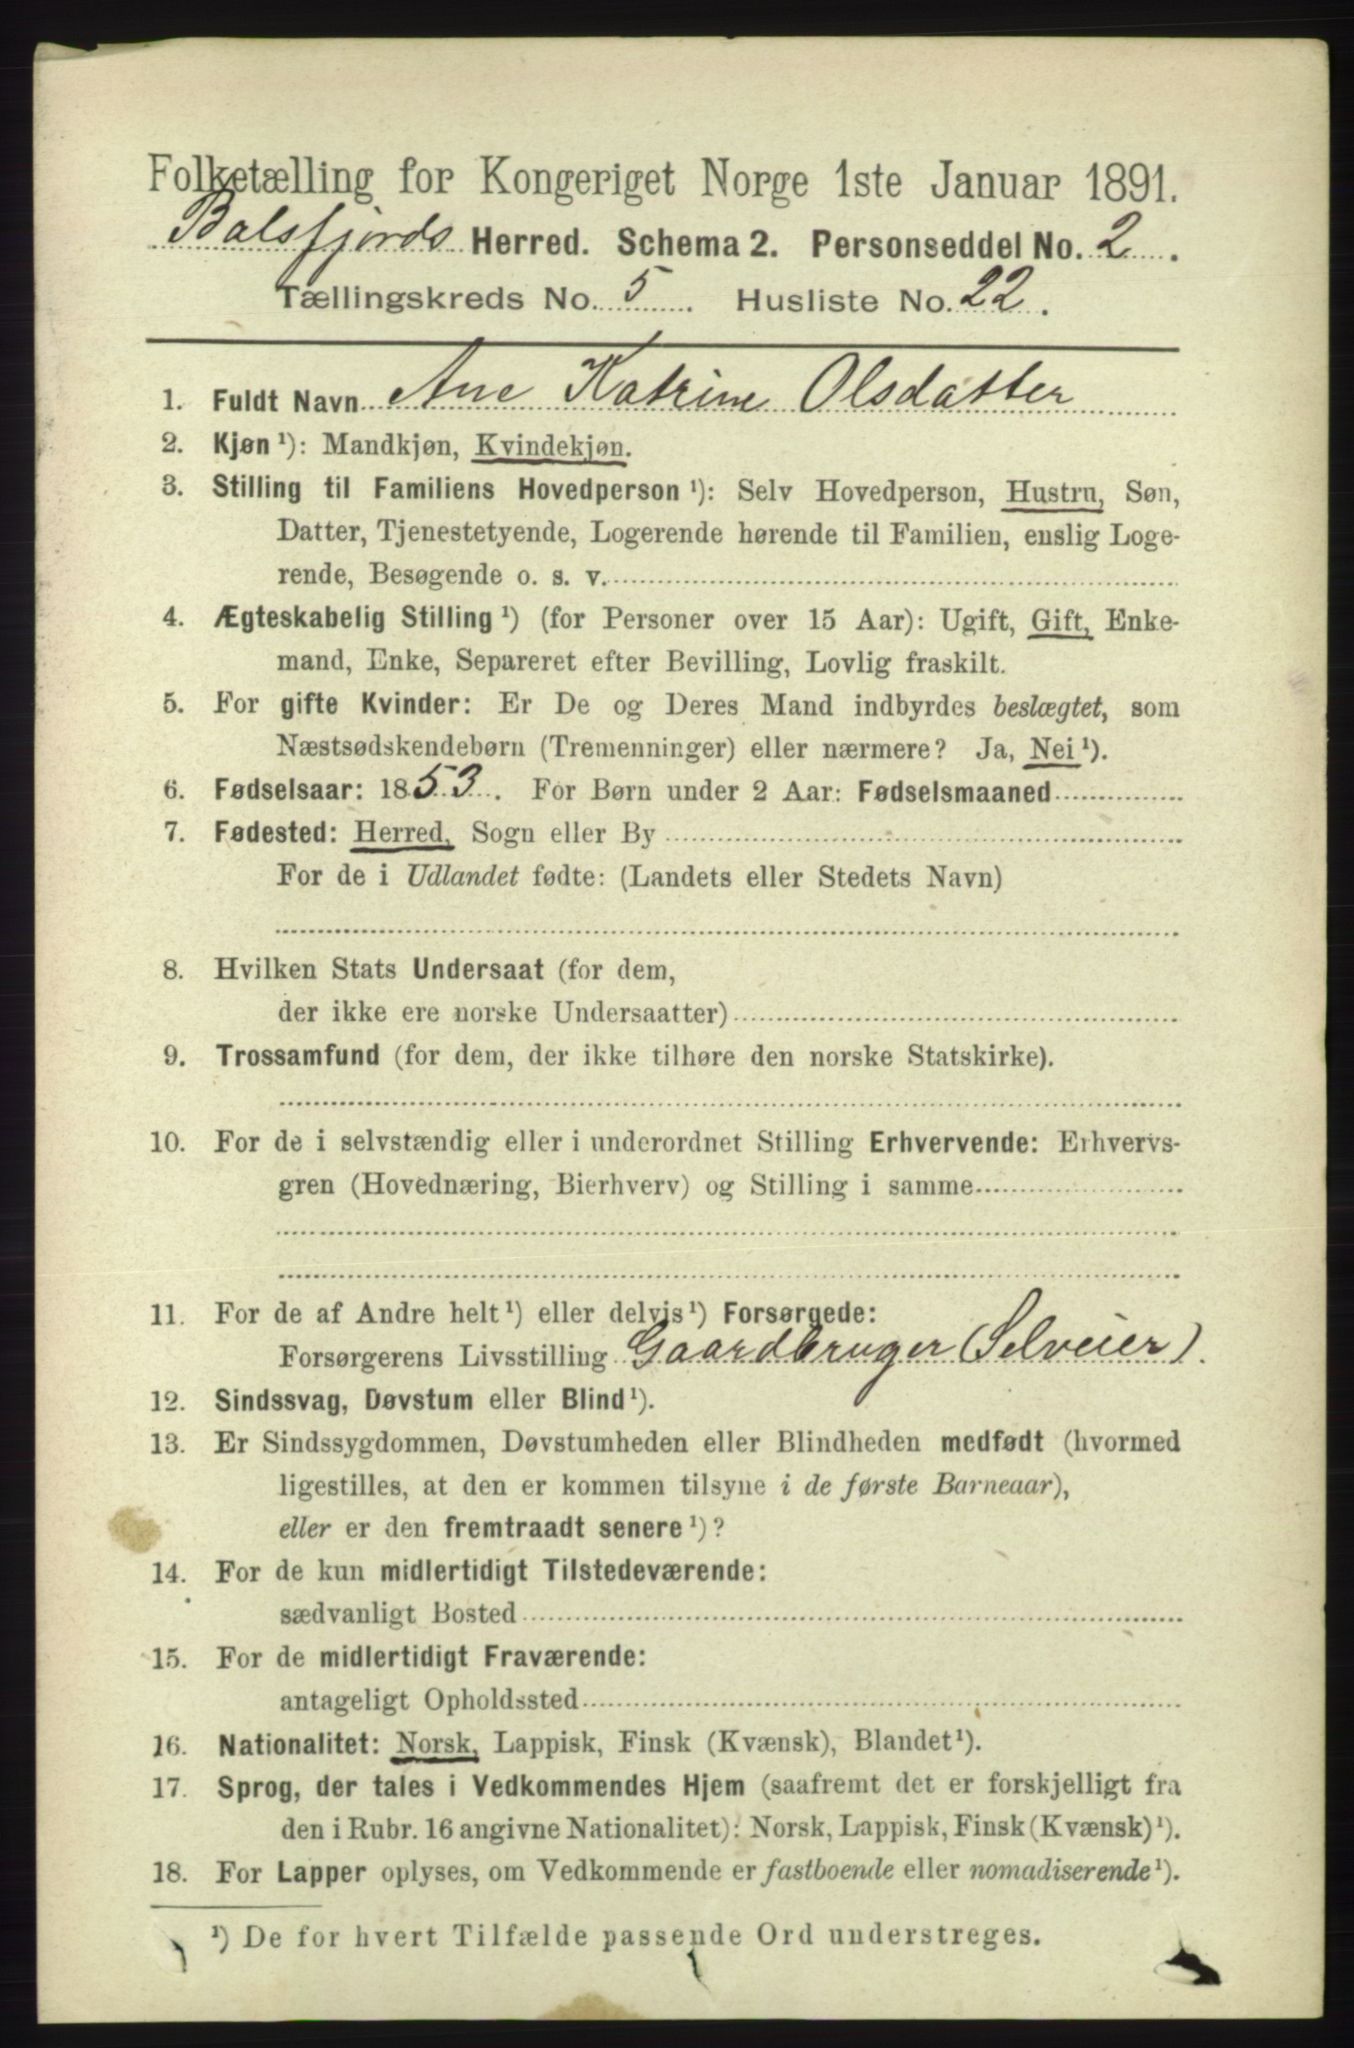 Folketælling for Kongeriget Norge 1ste Januar 1891.
Balsfjords Herred. Schema 2. Personseddel No. 2.
Tællingskreds No. 5. Husliste No. 22.
1. Fuldt Navn Ane Katrine Olsdatter
2. Kjøn ¹): Mandkjøn, Kvindekjøn.
3. Stilling til Familiens Hovedperson ¹): Selv Hovedperson, Hustru, Søn,
Datter, Tjenestetyende, Logerende hørende til Familien, enslig Loge-
rende, Besøgende o. s. v.
4. Ægteskabelig Stilling ¹) (for Personer over 15 Aar): Ugift, Gift, Enke-
mand, Enke, Separeret efter Bevilling, Lovlig fraskilt.
5. For gifte Kvinder: Er De og Deres Mand indbyrdes beslægtet, som
Næstsødskendebørn (Tremenninger) eller nærmere? Ja, Nei ¹).
6. Fødselsaar: 1853. For Børn under 2 Aar: Fødselsmaaned
7. Fødested: Herred, Sogn eller By
For de i Udlandet fødte: (Landets eller Stedets Navn)
8. Hvilken Stats Undersaat (for dem,
der ikke ere norske Undersaatter)
9. Trossamfund (for dem, der ikke tilhøre den norske Statskirke).
10. For de i selvstændig eller i underordnet Stilling Erhvervende: Erhvervs-
gren (Hovednæring, Bierhverv) og Stilling i samme
11. For de af Andre helt ¹) eller delvis ¹) Forsørgede:
Forsørgerens Livsstilling Gaardbruger (Selveier).
12. Sindssvag, Døvstum eller Blind ¹).
13. Er Sindssygdommen, Døvstumheden eller Blindheden medfødt (hvormed
ligestilles, at den er kommen tilsyne i de første Barneaar),
eller er den fremtraadt senere ¹)?
14. For de kun midlertidigt Tilstedeværende:
sædvanligt Bosted
15. For de midlertidigt Fraværende:
antageligt Opholdssted
16. Nationalitet: Norsk, Lappisk, Finsk (Kvænsk), Blandet ¹).
17. Sprog, der tales i Vedkommendes Hjem (saafremt det er forskjelligt fra
den i Rubr. 16 angivne Nationalitet): Norsk, Lappisk, Finsk (Kvænsk) ¹).
18. For Lapper oplyses, om Vedkommende er fastboende eller nomadiserende ¹).
¹) De for hvert Tilfælde passende Ord understreges.